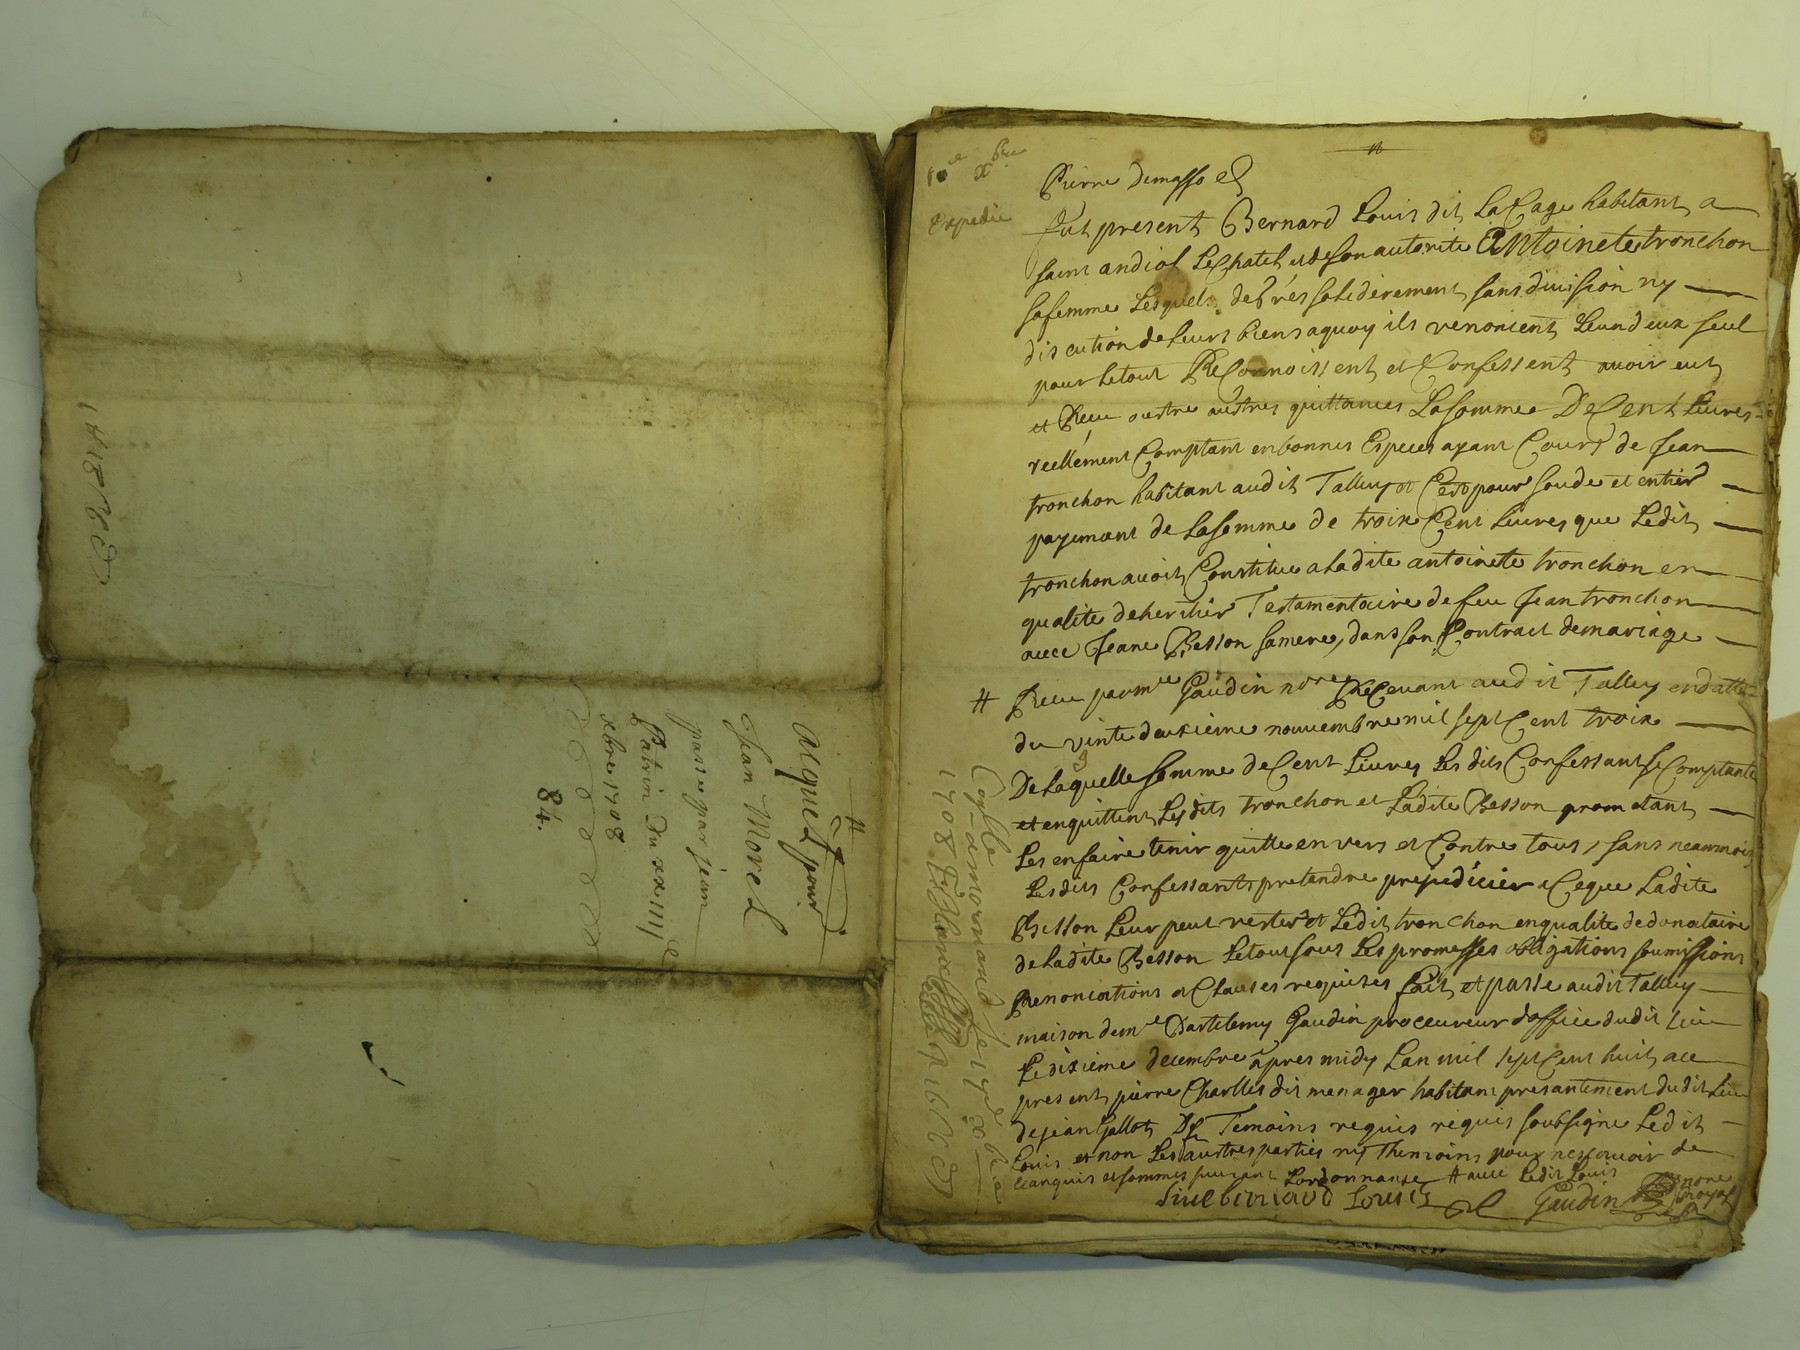 Acquet pour
Jean Morel
passee par jean
Patrin du xxiiii e
xbre 1708
84.
10e xbre
Expedie
Pierre demasso et
fut present Bernard Louis dit LaCage habitant a
saint andiol Lechatel et de son autorite Antoinete tronchon
sa femme Lesquels de grés solidérement sans division ny
discution de leurs biens a quoy ils renoncent Leun deux seul
pour le tout ReConnoissent et Confessent avoir eut
et Reeu outre autres quittances La somme De Cent Livres
reellément Comptant en bonnes Especes ayant Cours de Jean
tronchon habitant audit Talluy et C'est pour soude et entier
payemant de La somme de troix Cent Livres que Ledit
tronchon avoit Constitue a Ladite antoinete tronchon en
qualite de heritier Testamentaire de feu Jean tronchon
avec Jeane Besson sa mere, dans son Contract de mariage
# Reeu par me Gaudin nore ReCevant audit Talluy en datte
du vinte deuxieme nouvembre mil sept Cent troix
De Laquelle somme de Cent Livres Les dits Confessant se Comptante
et enquittent Lesdits tronchon et Ladite Besson prometant
Les en faire tenir quitte envers et Contre tous, sans neanmoins
Lesdits Confessants pretandre prejudicier a Ce que Ladite
Besson Leur peut rester et Ledit tronchon en qualite de donataire
de Ladite Besson Le tout sous Les promesses obligations soumissions
Renonciations et Clauses requises fait et passe audit Talluy
maison de me Bartelemy Gaudin proceureur d'office dudit Lieu
Le dixieme decembre apres midy Lan mil sept Cent huit, a ce
present pierre Charlles dit menager habitant presantement dudit Lieu
de jean Gallot, Temoins requis requis soubsigne Ledit
Louis et non Les austres parties ny Themoins pour ne sçavoir de
Lordonnance # avec Ledit Louis
Louis Gaudin nore royal
1708